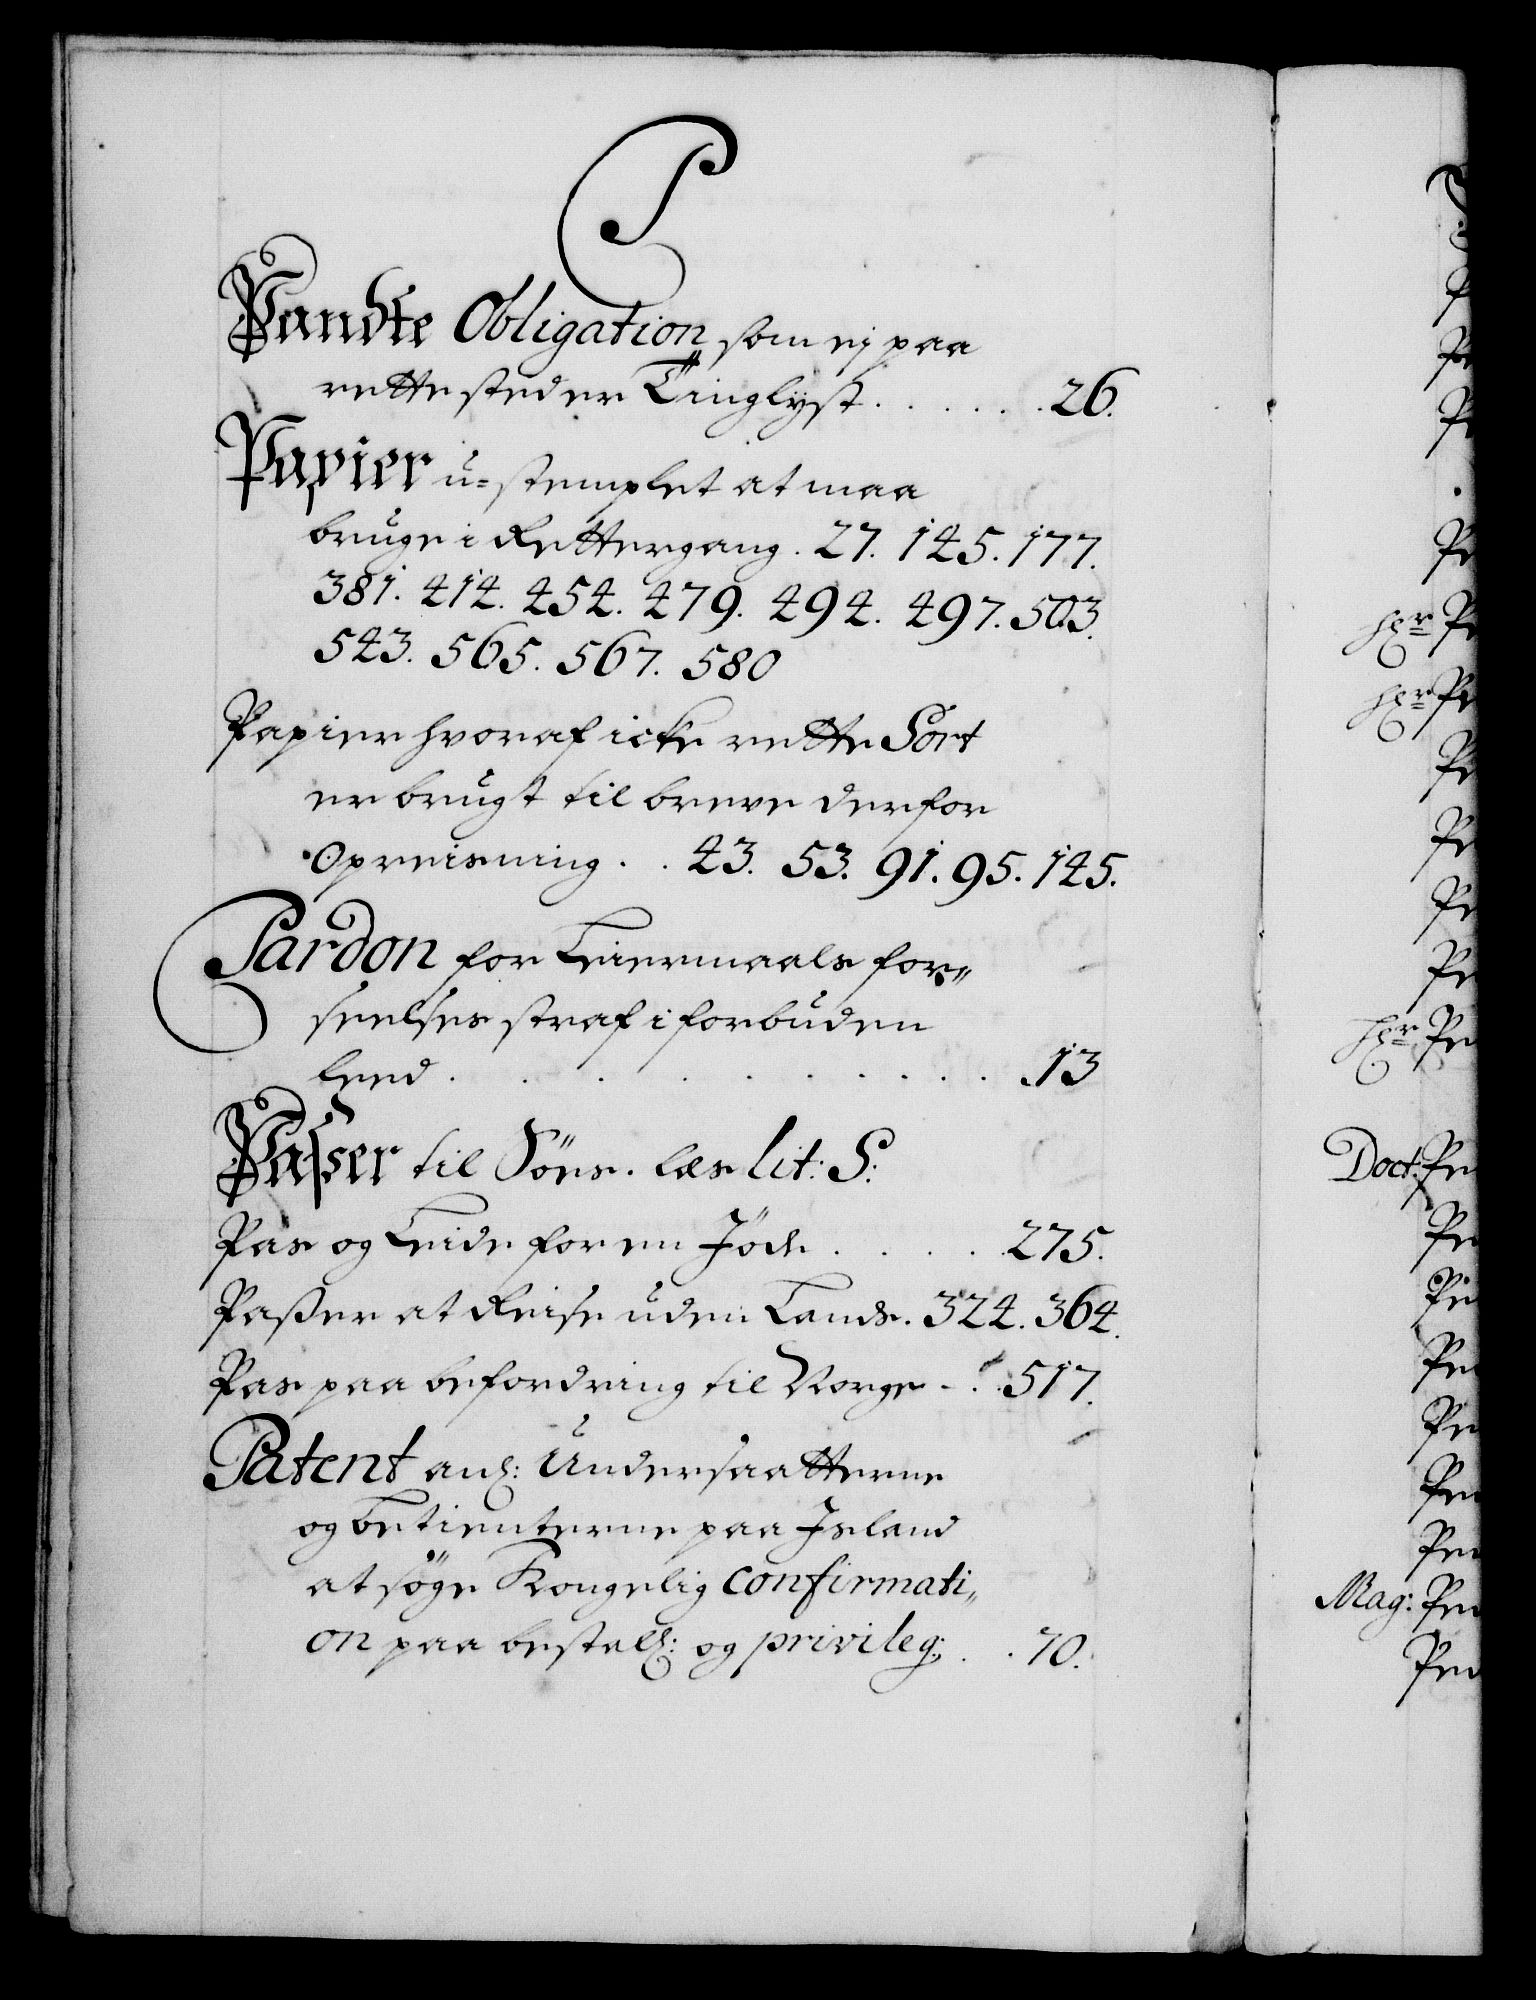 P
Pandte Obligation som ej paa
rette sted er Tinglyst . . . . . . 26.
Papier u=stemplet at maa
bruge i Rettergang. 27. 145. 177.
381. 414. 454. 479. 494. 497. 503.
543. 565. 567. 580
Papier hvoraf icke rette Sort
er brugt til breve derfor
Opreisning . . 43. 53. 91. 95. 145.
Pardon for Leiermaals for„
seelses straf i forbuden
Leed . . . . . . . . . . 13
Passer til Söes. læs lit: S:
Pas og Leide for en Jöde . . . . . 275.
Paßer at Reise uden Lands. 324. 364.
Pas paa befordring til Norge - . . 517.
Patent anl: Undersaatterne
og betienterne paa Island
at söge Kongelig Confirmati„
on paa bestall: og privileg: . . 70.
hr Pe
hr Pe
hr Pe
Doct: Pe
Mag: Pe